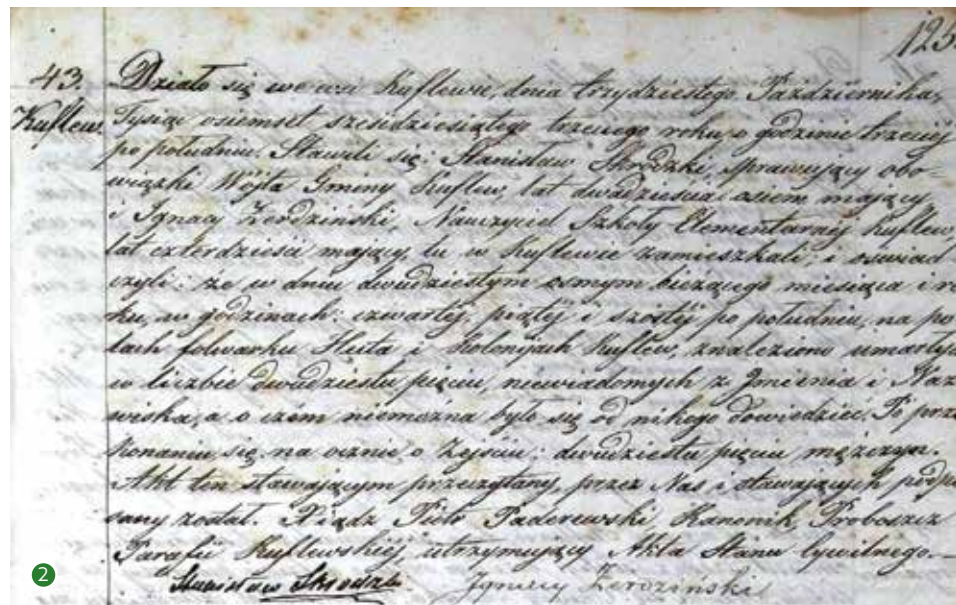 125
43. Działo się we wsi Kuflewie, dnia trzydziestego Października,
Kuflew. Tysiąc osiemset sześdziesiątego trzeciego roku, o godzinie trzeciej
po południu. Stawili się: Stanisław Skrodzki, sprawujący obo-
wiązki Wójta Gminy Kuflew, lat dwadzieścia osiem mający
i Ignacy Zerdziński, Nauczyciel Szkoły Elementarnéj Kuflew,
lat czterdzieści mający, tu w Kuflewie zamieszkali; i oświad
czyli: że w dniu dwudziestym osmym bieżącego miesiąca i ro
ku, w godzinach: czwartéj, piątéj i szostéj, po południu, na po
lach folwarku Huta i Kolonijach Kuflew, znaleziono umarłych
w liczbie dwudziestu pięciu, niewiadomych z Jmienia i Naz
wiska, a o czém niemożna było się od nikogo dowiedzieć. Po prze
konaniu się na ocznie o Zejściu: dwudziestu pięciu męzczyn.
Akt ten stawającym przeczytany, przez Nas i stawających podpi
sany został. Xiądz Piotr Paderewski Kanonik Proboszcz
Parafii Kuflewskiéj utrzymujący Akta Stanu Cywilnego.—
Stanisław Skrodzki Ignacy Zerdziński
2